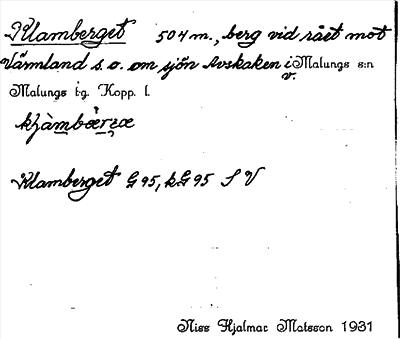 Klamberget 504 m., berg vid rået mot
Värmland s.o. om sjön Avskaken i Malungs s:n
v.
Malungs tg. Kopp. l.
Klamberget G 95, kG 95 S V
Niss Hjalmar Matsson 1931